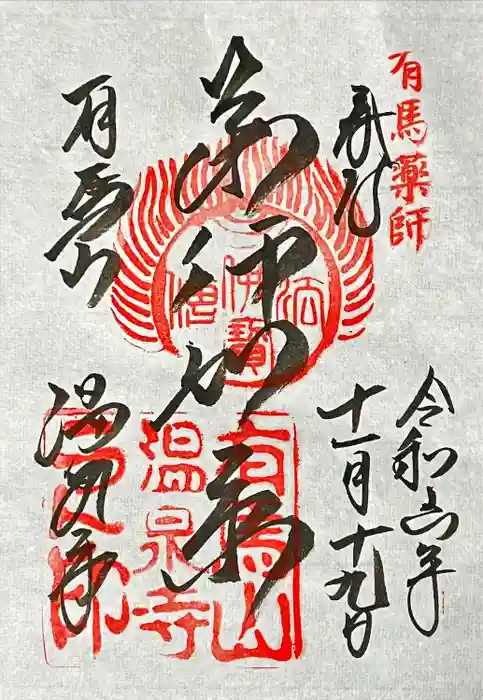 有馬薬師
奉拝
令和六年
十一月十九日
有馬山
温泉寺
佛法僧寶
有馬山
温泉寺